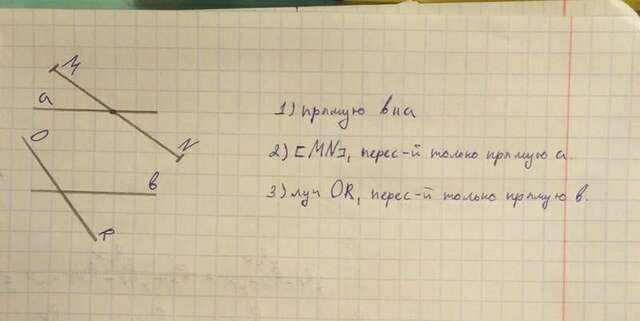 M
a
N
O
в
R
1) прямую в и а
2) [MN], перес-й только прямую а.
3) луч OR, перес-й только прямую в.